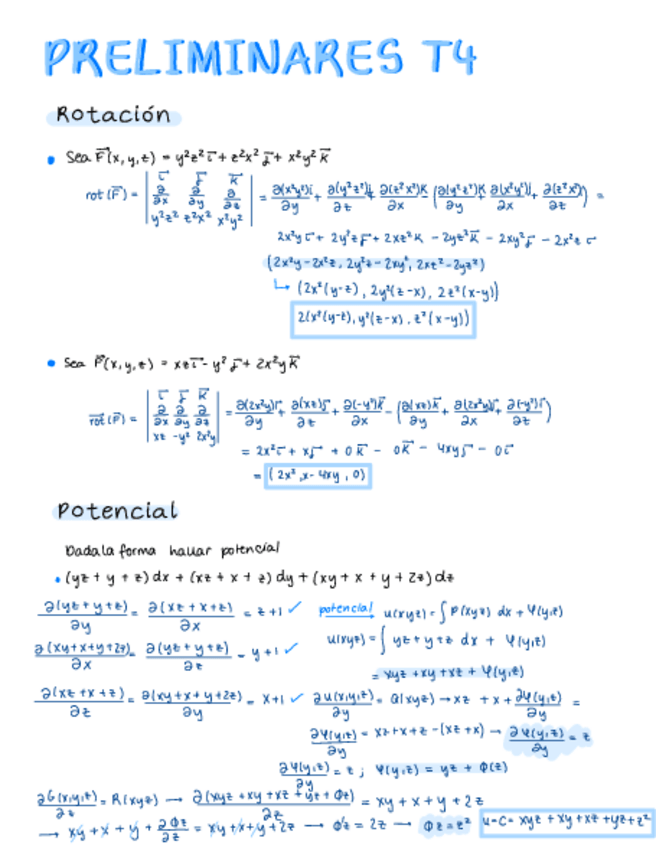 PRELIMINARES T4
Rotación
• Sea F⃗(x,y,z) = y²z² i⃗ + z²x² j⃗ + x²y² k⃗
rot(F⃗) = | i⃗ j⃗ k⃗ ; ∂/∂x ∂/∂y ∂/∂z ; y²z² z²x² x²y² | = ∂(x²y²)i/∂y + ∂(y²z²)j/∂z + ∂(z²x²)k/∂x - (∂(y²z²)k/∂y + ∂(x²y²)j/∂x + ∂(z²x²)i/∂z) =
2x²y i⃗ + 2y²z j⃗ + 2xz² k - 2yz² k⃗ - 2xy² j⃗ - 2x²z i⃗
(2x²y - 2x²z, 2y²z - 2xy², 2xz² - 2yz²)
↳ (2x²(y-z), 2y²(z-x), 2z²(x-y))
2(x²(y-z), y²(z-x), z²(x-y))
• Sea P⃗(x,y,z) = xz i⃗ - y² j⃗ + 2x²y k⃗
rot(P⃗) = | i⃗ j⃗ k⃗ ; ∂/∂x ∂/∂y ∂/∂z ; xz -y² 2x²y | = ∂(2x²y)i⃗/∂y + ∂(xz)j⃗/∂z + ∂(-y²)k⃗/∂x - (∂(xz)k⃗/∂y + ∂(2x²y)j⃗/∂x + ∂(-y²)i⃗/∂z)
= 2x² i⃗ + x j⃗ + 0 k⃗ - 0 k⃗ - 4xy j⃗ - 0 i⃗
= (2x², x - 4xy, 0)
Potencial
Dada la forma hallar potencial
• (yz + y + z) dx + (xz + x + z) dy + (xy + x + y + 2z) dz
∂(yz+y+z)/∂y = ∂(xz+x+z)/∂x = z+1 ✓
potencial u(xyz) = ∫ P(xyz) dx + φ(y,z)
∂(xy+x+y+2z)/∂x = ∂(yz+y+z)/∂z = y+1 ✓
u(xyz) = ∫ yz + y + z dx + φ(y,z)
= xyz + xy + xz + φ(y,z)
∂(xz+x+z)/∂z = ∂(xy+x+y+2z)/∂y = x+1 ✓
∂u(x,y,z)/∂y = Q(xyz) → xz + x + ∂φ(y,z)/∂y =
∂φ(y,z)/∂y = xz + x + z - (xz + x) → ∂φ(y,z)/∂y = z
∂φ(y,z)/∂y = z ; φ(y,z) = yz + Φ(z)
∂G(x,y,z)/∂z = R(xyz) → ∂(xyz + xy + xz + yz + Φz)/∂z = xy + x + y + 2z
→ xy + x + y + ∂Φz/∂z = xy + x + y + 2z → Φ'z = 2z → Φz = z²
u - C = xyz + xy + xz + yz + z²